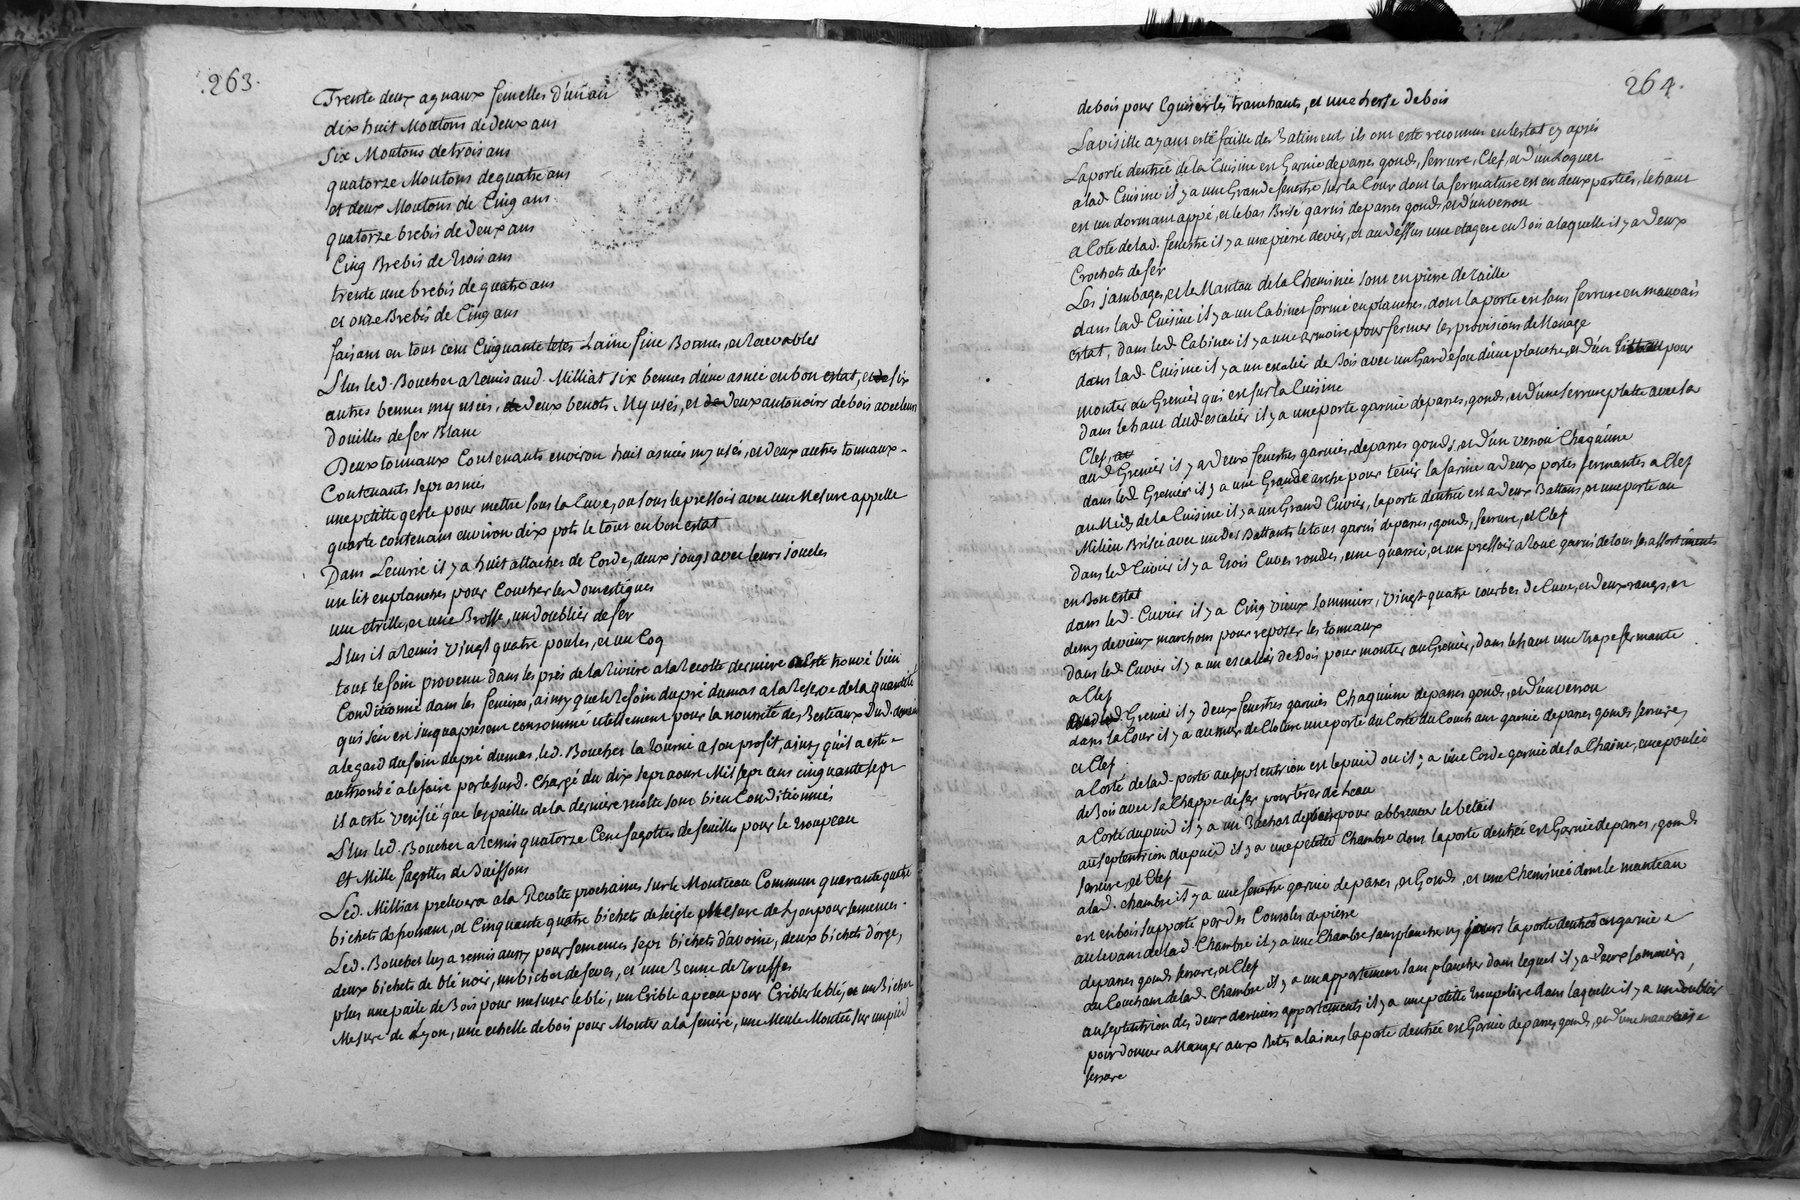 263.
Trente deux agnaux femelles d'un an
dix huit Moutons de deux ans
six Moutons de trois ans
quatorze Moutons de quatre ans
et deux Moutons de Cinq ans
quatorze brebis de deux ans
Cinq Brebis de trois ans
trente une brebis de quatre ans
et onze Brebis de Cinq ans
faisant en tout cent Cinquante tetes Laine fine Bonnes, et recevables
Plus led. Boucher a remis aud. Milliat six bennes d'une asnée en bon estat, et de six
autres bennes my usées, de deux benots My usés, et de deux antonoirs de bois avec leurs
douilles de fer Blanc
Deux tonnaux Contenants environ huit asnées my usés, et deux autres tonnaux
Contenants sept asnées
une petitte gerle pour mettre sous la Cuve, ou sous le pressoir avec une Mesure appellé
quarte contenant environ dix pots le tout en bon estat
Dans Lecurie il y a huit attaches de Corde, deux jougs avec leurs joucles
un lit en planches pour Coucher les domestiques
une etrille, et une Brosse, un doublier de fer
Plus il a remis vingt quatre poules, et un Coq
tout le foin provenu dans les prés de la riviere a la recolte derniere a esté trouvé bien
Conditionné dans les fenieres, ainsy que le foin du pré dumas a la reserve de la quantité
qui s'en est jusqua present consommé utillement pour la nourrité des Bestiaux dud. domaine
a legard du foin du pré dumas, led. Boucher la tourné a son profit, ainsy qu'il a esté
authorisé a le faire par lesusd. Chargé du dix sept aoust Mil sept cens cinquante sept
il a esté verifié que les pailles de la derniere recolte sont bien Conditionnées
Plus led. Boucher a remis quatorze Cent fagottes de feuilles pour le troupeau
et Mille fagottes de Buissons
Led. Milliat prelevera a la Recolte prochaine sur le Monceau Commun quarante quatre
bichets de froment, et Cinquante quatre bichets de seigle Mesure de Lyon pour semences
Led. Boucher luy a remis aussy pour semences sept bichets d'avoine, deux bichets d'orge,
deux bichets de blé noir, un bichet de feves, et une Benne de truffes
plus une paile de Bois pour mesurer le blé, un Crible a peau pour Cribler le blé, et un Bichet
Mesure de Lyon, une echelle de bois pour Monter a la feniere, une Meule Montée sur un pied
264.
de bois pour Eguiser les tranchants, et une herse de bois
La visitte ayant esté faitte des Batiment, ils ont esté reconnus en lestat cy aprés
La porte dentrée de la Cuisine est Garnie de panes gonds, serrure, Clef, et d'un Loquet
a lad. Cuisine il y a une Grande fenestre sur la Cour dont la fermature est en deux parties, le haut
est un dormant appé, et le bas Brisé garnis de panes gonds, et d'un verrou
a Coté de lad. fenestre il y a une pierre devier, et au dessus une etagere en Bois a laquelle il y a deux
Crochets de fer
Les jambages, et le Manteau de la Cheminée sont en pierre de taille
dans lad. Cuisine il y a un Cabinet formé en planches, dont la porte en sans serrure en mauvais
estat, dans led. Cabinet il y a une armoire pour fermer les provisions de Menage
dans lad. Cuisine il y a un escalier de Bois avec un Gardefou d'une planche, et d'un litteau pour
monter au Grenier qui est sur la Cuisine
dans le haut dud. escalier il y a une porte garnie de panes, gonds, et d'une serrure platte avec sa
Clef, au
aud. Grenier il y a deux fenestres garnies de panes gonds, et d'un verrou Chaquune
dans led. Grenier il y a une Grande arche pour tenir la farine a deux portes fermantes a Clef
au Midy de la Cuisine il y a un Grand Cuvier, la porte dentrée est a deux Battans, et une porte au
Milieu Brisée avec un des Battants le tout garni de panes, gonds, serrure, et Clef
dans led. Cuvier il y a trois Cuves rondes, et une quarrée, et un pressoir a roue garni de tous ses assortiments
en Bon estat
dans led. Cuvier il y a Cinq vieux sommiers, vingt quatre courbes de Cuve, et deux rangs, et
demy de vieux marchons pour reposer les tonneaux
dans led. Cuvier il y a un escallier de Bois pour monter au Grenier, dans le haut une trape fermante
a Clef
aud. Grenier il y deux fenestres garnies Chaquune de panes gonds, et d'un verrou
dans la Cour il y a au mur de Cloture une porte du Coté du Couchant garnie de panes gonds serrure,
et Clef
a Coté de lad. porte au septentrion est le puid ou il y a une Corde garnie de sa Chaine, une poulie
de Bois avec sa Chappe de fer pour tirer de leau
a Coté du puid il y a un Bachat de bois pour abbreuver le betail
au septentrion du puid il y a une petitte Chambre dont la porte dentrée est Garnie de panes, gonds
serrure, et Clef
a lad. chambre il y a une fenestre garnie de panes, et Gonds, et une Cheminée dont le manteau
est en bois supporté par des Consoles de pierre
au levant de lad. Chambre il y a une Chambre sans plancher ny jours la porte dentrée est garnie
de panes gonds serrure, et Clef
au Couchant de lad. Chambre il y a un appartement sans plancher dans lequel il y a deux sommiers,
au septentrion des deux derniers appartements il y a une petitte dans laquelle il y a un doublier
pour donner a Manger aux Betes a laines la porte dentrée est Garnie de panes gonds, et d'une mauvaise
serrure